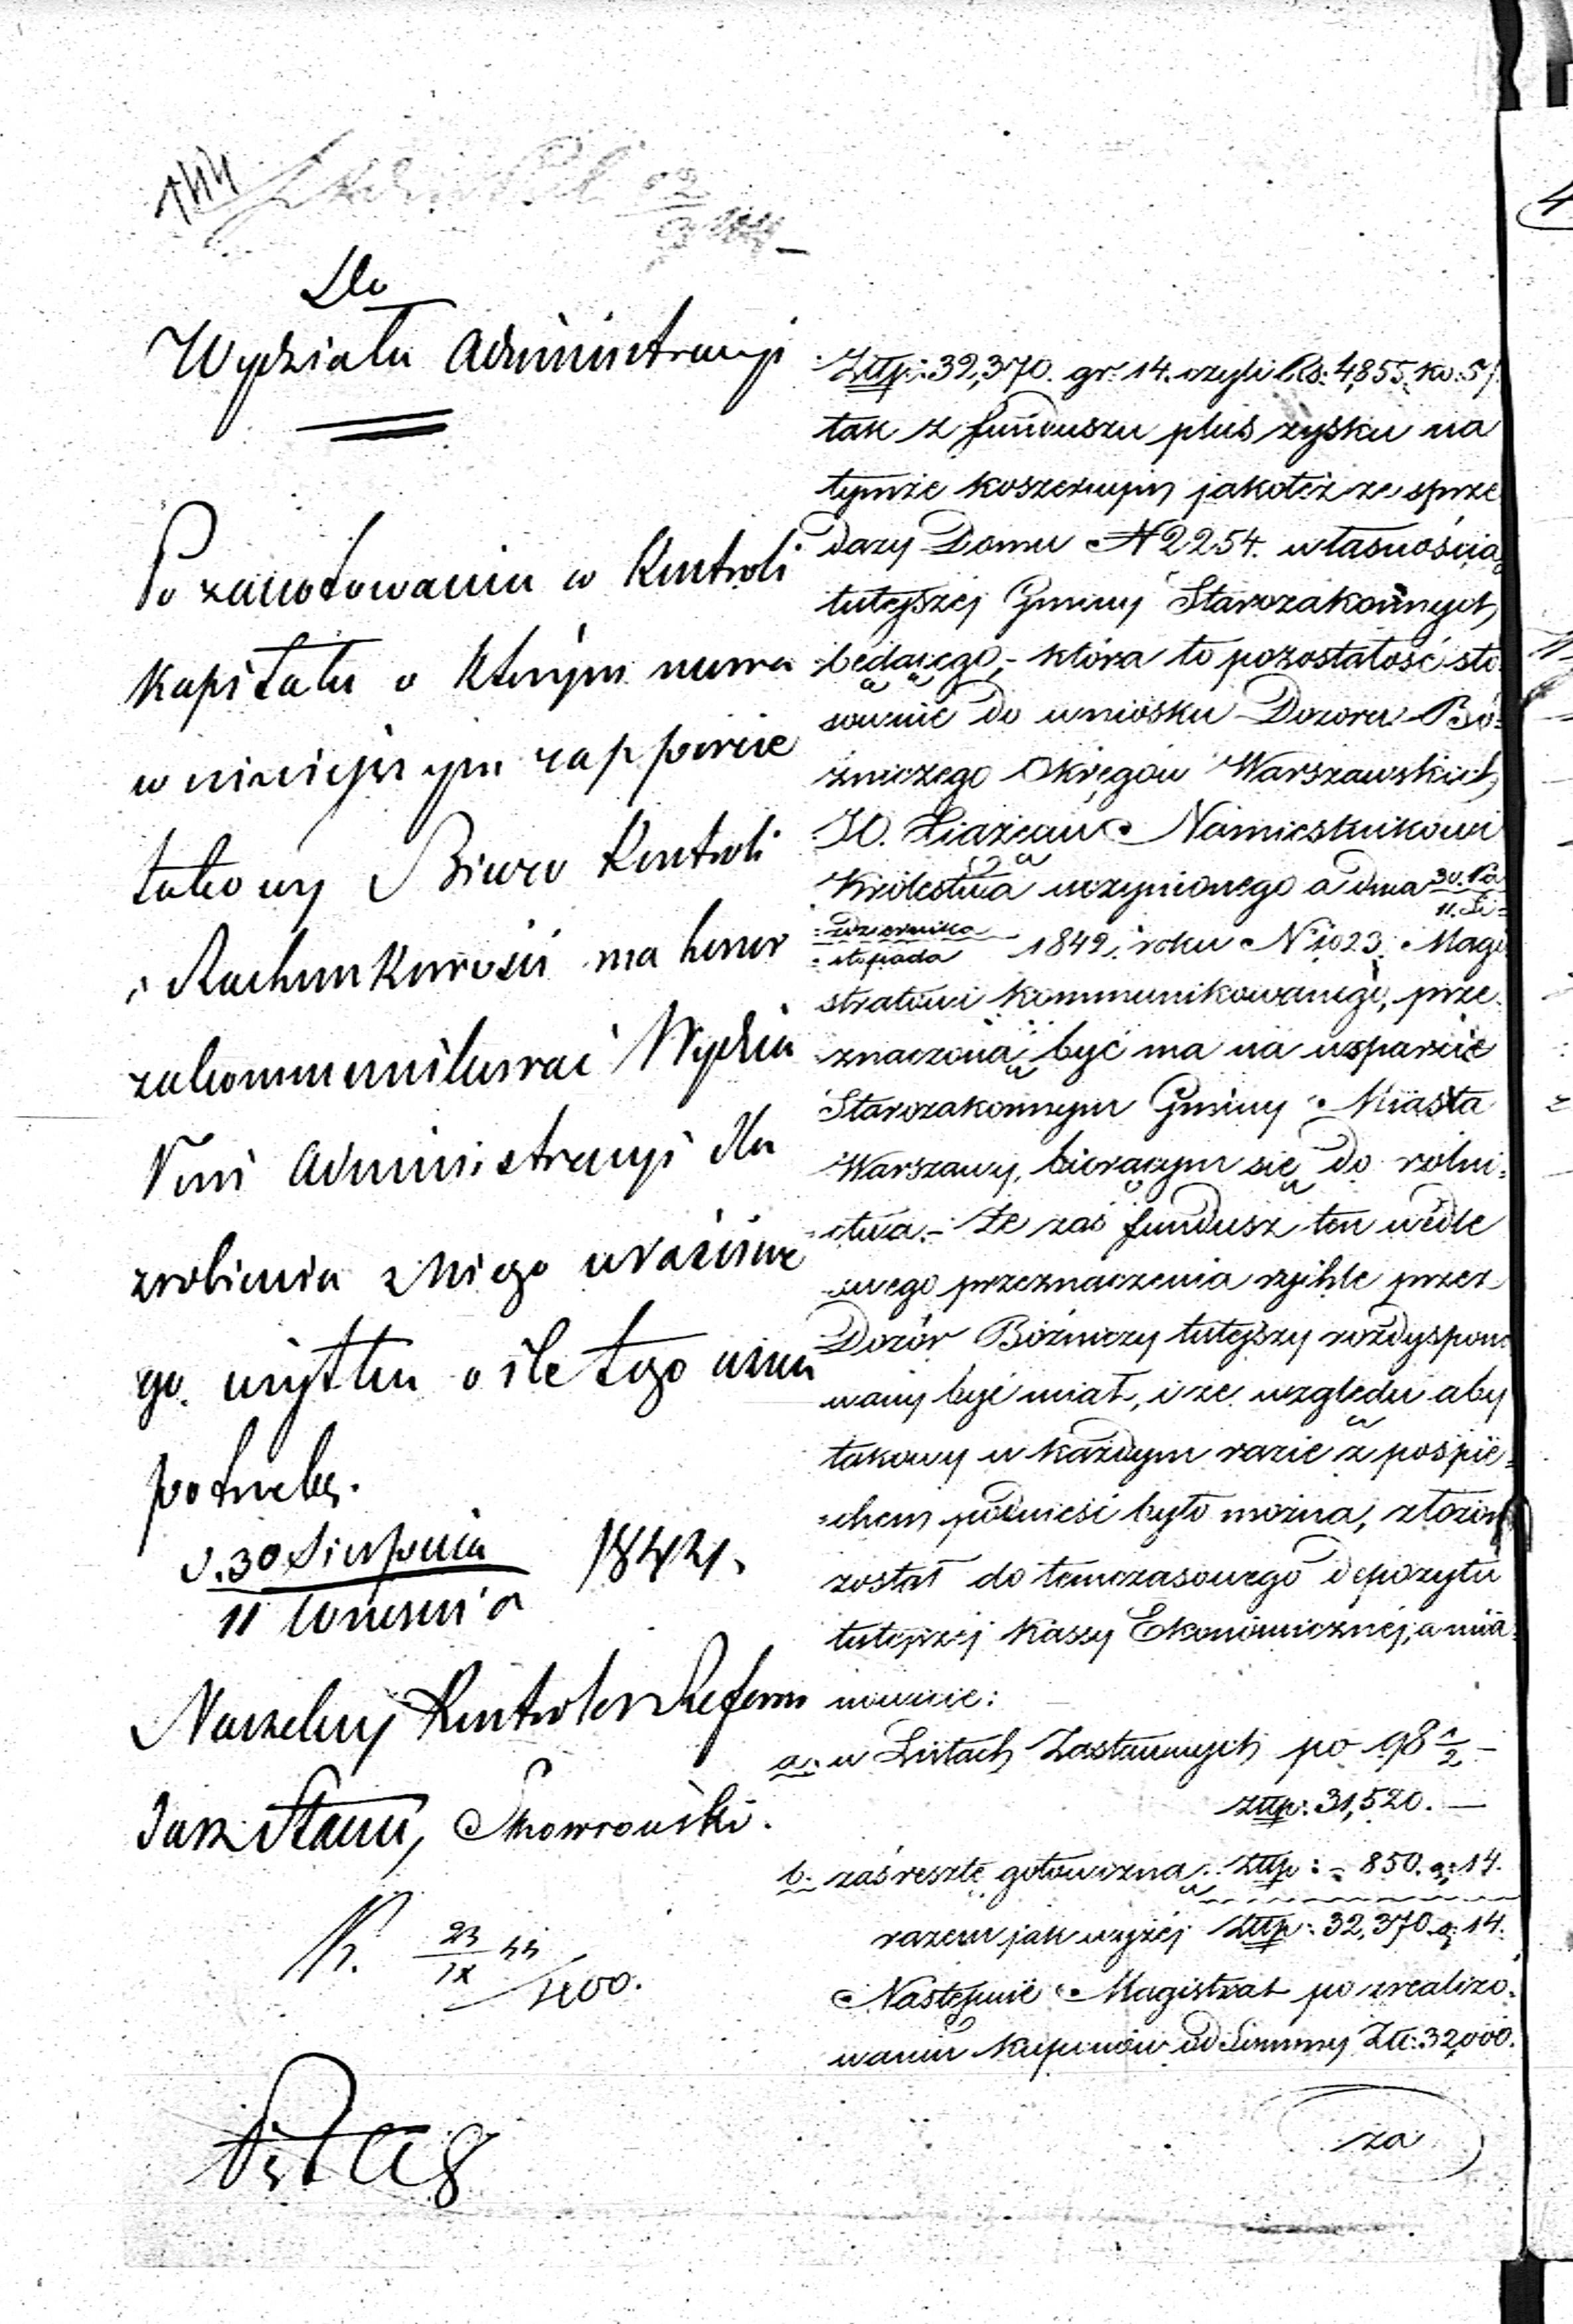 144
Do
Wydziału Administracyi
Po zanotowaniu w Kontroli
kapitału o którym mowa
w niniejszym rapporcie
takowy Biuro Kontroli
i Rachunkowości ma honor
zakommunikować Wydzia
łowi Administracyi dla
zrobienia z niego właściwe
go użytku o ile tego
potrzeba.
d. 30 Sierpnia
11 Września 1844.
Naczelny Kontroler
R. 23/IX 44
Złtp: 32,370. gr: 14. czyli Rs: 4,855. ko: 57
tak z funduszu plus zysku na
tymże koszernym jakoteż ze sprze
daży Domu N 2254. własnością
tutejszej Gminy Starozakonnych
będącego,- która to pozostałość sto
sownie do wniosku Dozoru Bó=
żniczego Okręgów Warszawskich
JO. Xiążęciu Namiestnikowi
Królestwa uczynionego a dnia 30. Pa
=zdziernika
11. Li=
=stopada 1842. roku N 1023. Magi
stratowi kommunikowanego, prze=
znaczoną być ma na wsparcie
Starozakonnym Gminy Miasta
Warszawy, biorącym się do rolni=
=ctwa.- Że zaś fundusz ten wedle
swego przeznaczenia rychle przez
Dozór Bóżniczy tutejszy rozdyspono
wany być miał, i ze względu aby
takowy w każdym razie z pośpie=
=chem podnieść było można, złożony
został do tymczasowego depozytu
tutejszej Kassy Ekonomicznej, a mia=
nowicie:
a. w Listach Zastawnych po 98 1/2 -
złtp: 31,520. —
b. zaś resztę gotowizną złtp: = 850. g: 14.
razem jak wyżej złtp: 32,370. g: 14.
Następnie Magistrat po zrealizo=
waniu kuponów od Summy Złt: 32,000.
za